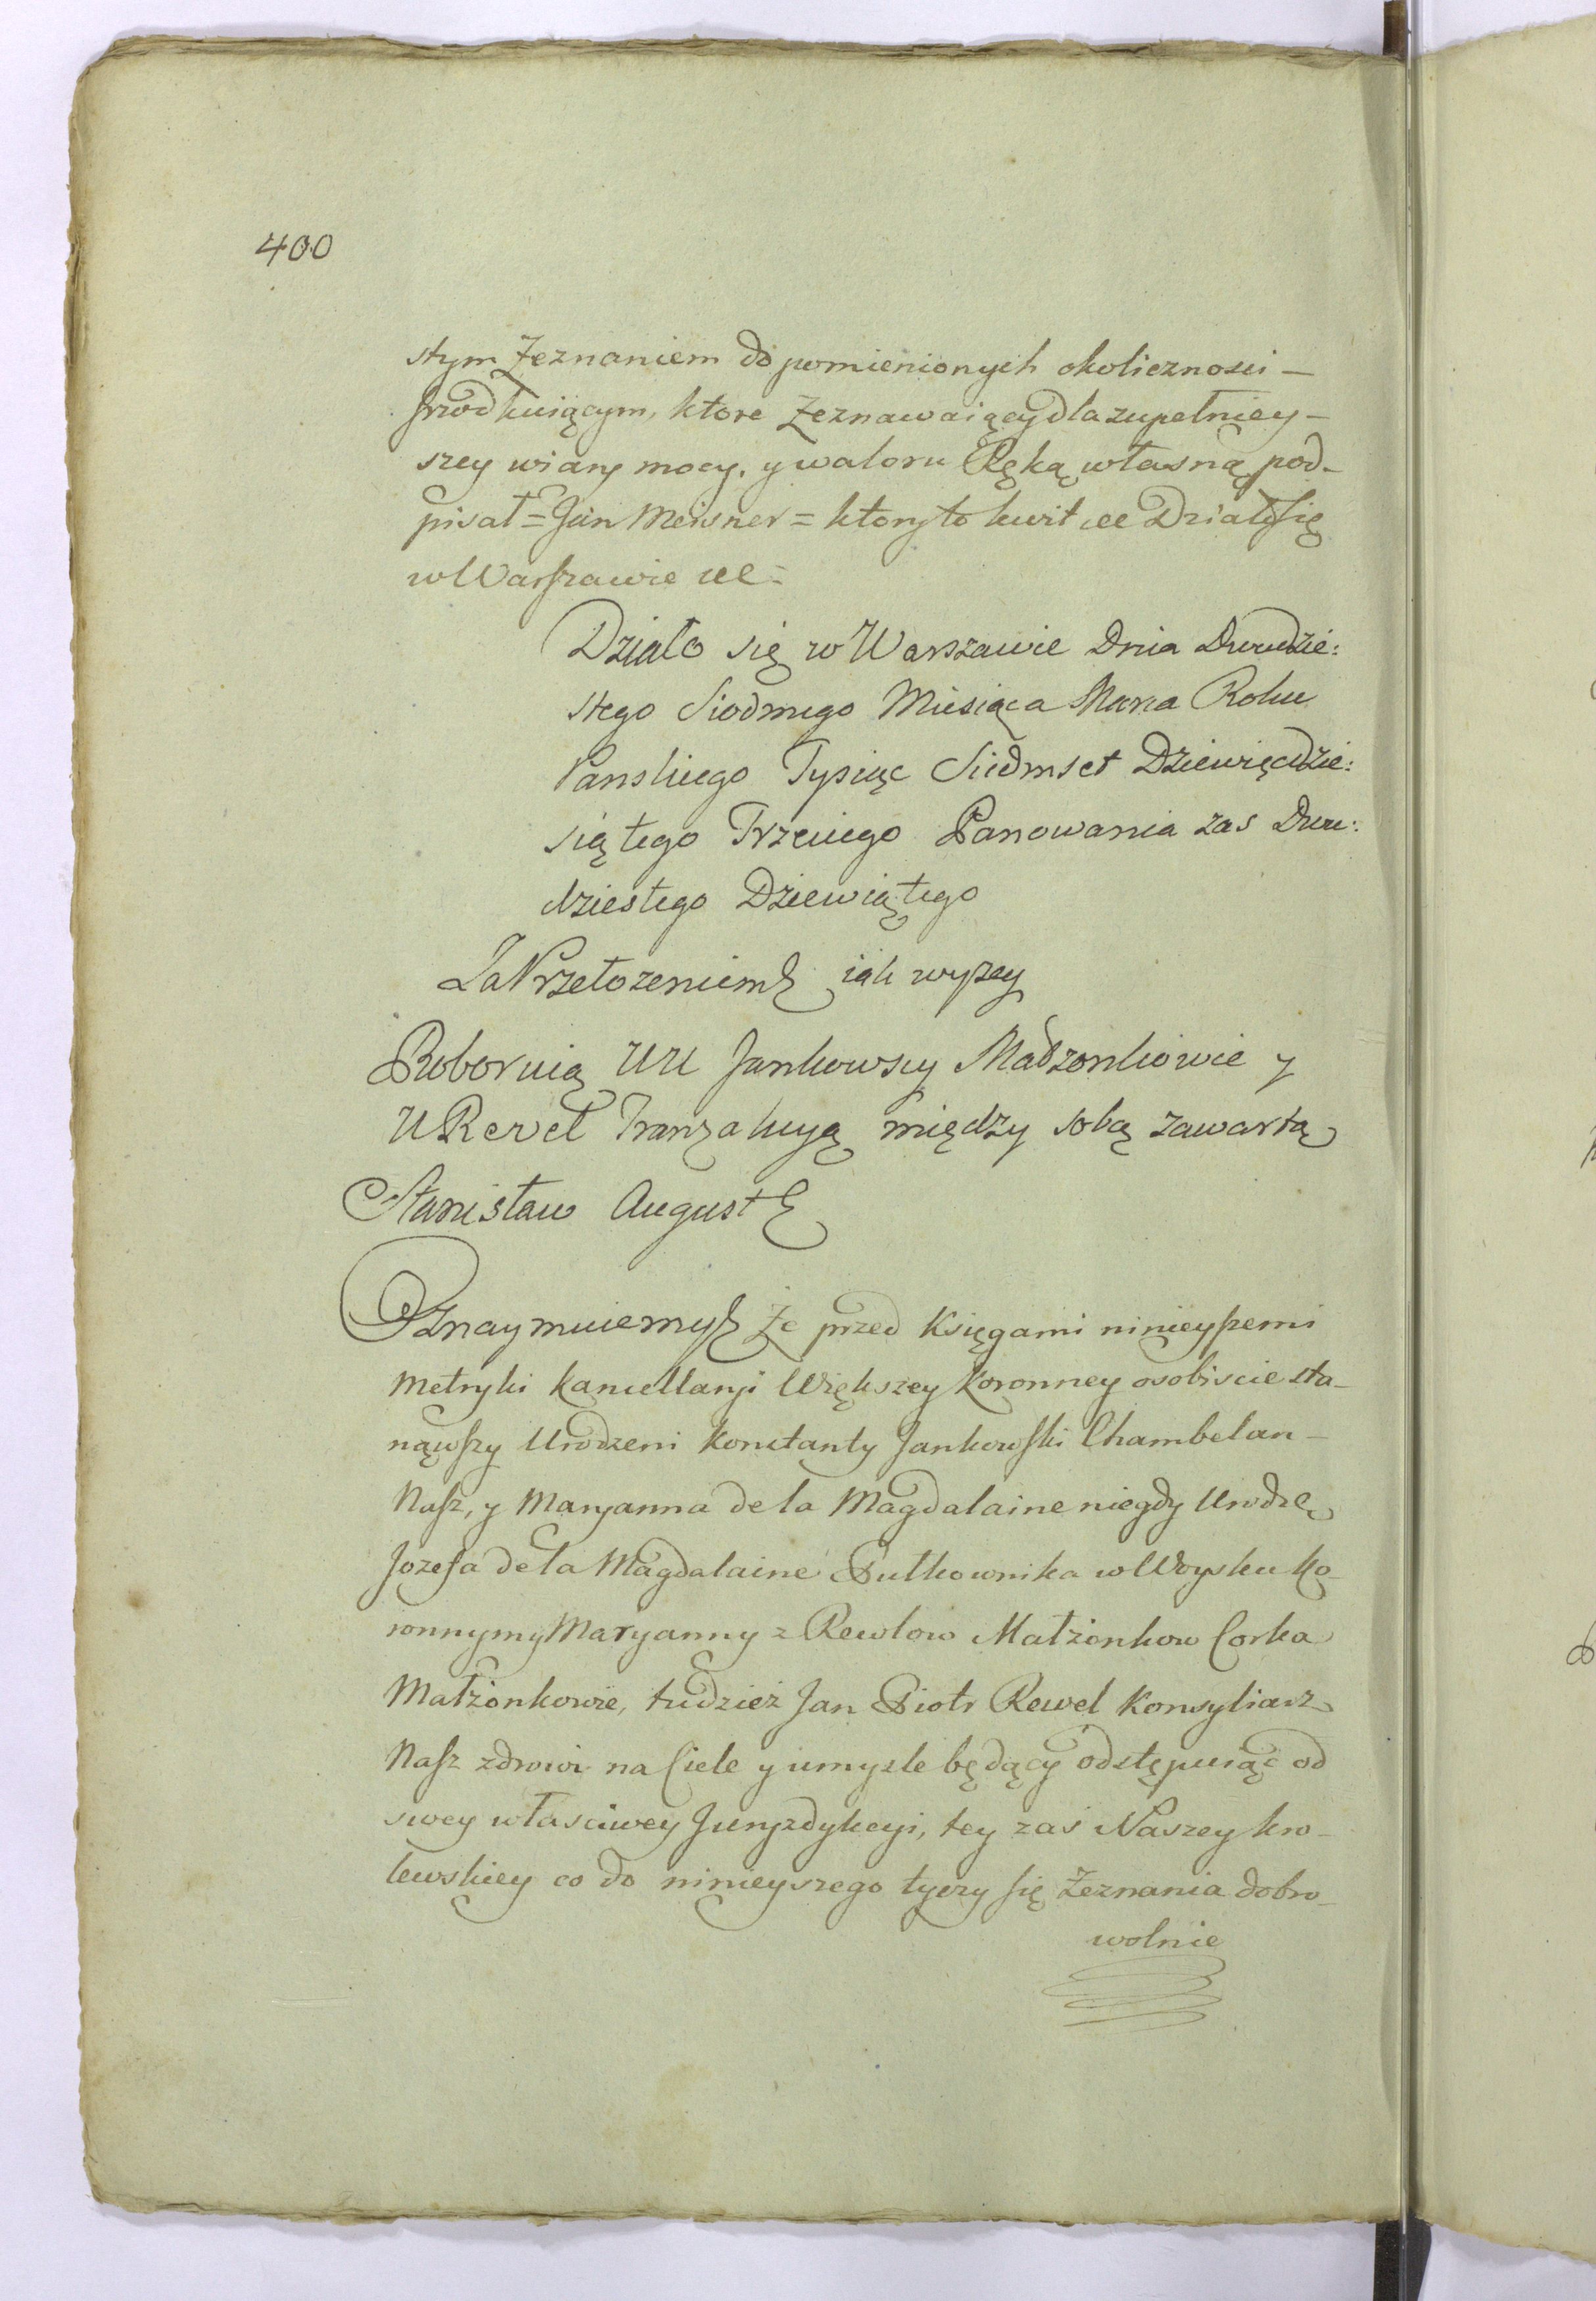 400
stym Zeznaniem do pomienionych okolicznosci –
srzodkuiącym, ktore Zeznawaiący dla zupełniey –
szey wiary mocy, y waloru Ręką własną pod –
pisał = Jan Meisner = ktory to kwit etc Działo się
w Warszawie etc =
Działo się w Warszawie Dnia Dwudzie:
stego Siodmego Miesiąca Maia Roku
Panskiego Tysiąc Siedmset Dziewięcdzie:
siątego Trzeciego Panowania zas Dwu:
dziestego Dziewiątego
Za Przełozeniem iak wyszey
Roboruią UU Jankowscy Madzonkowie y
U Revel Tranzakcyą między sobą zawartą
Stanisław August
Oznaymuiemy Ze przed Księgami ninieyszemi
Metryki Kancellaryi Większey Koronney osobiscie sta –
nąwszy Urodzeni Konstanty Jankowski Chambelan –
Nasz, y Maryanna de la Magdalaine niegdy Urodze
Jozefa de la Magdalaine Pułkownika w Woysku Ko –
ronnym y Maryanny z Rewlow Małżonkow Corka
Małżonkowie, tudzież Jan Piotr Rewel Konsyliarz
Nasz zdrowi na Ciele y umysle będący odstępuiąc od
swey własciwey Juryzdykcyi, tey zaś Naszey kro –
lewskiey co do ninieyszego tyczy się Zeznania dobro –
wolnie